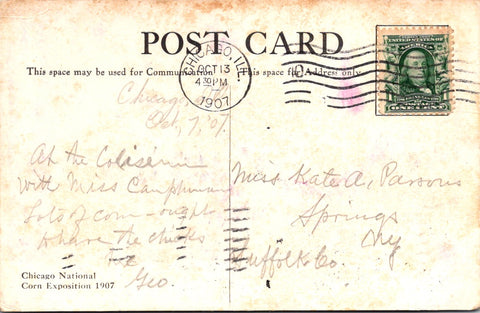 POST CARD
This space may be used for Communication
This space for Address only
CHICAGO, ILL.
OCT 13
4 30 PM
1907
UNITED STATES OF AMERICA
POSTAGE
ONE CENT
Chicago
Oct, 7, '07.
At the Coliseum
with Miss
Lots of corn - ought
to have the chicks
Geo.
Miss Kate A. Parsons
Springs
Suffolk Co. NY
Chicago National
Corn Exposition 1907